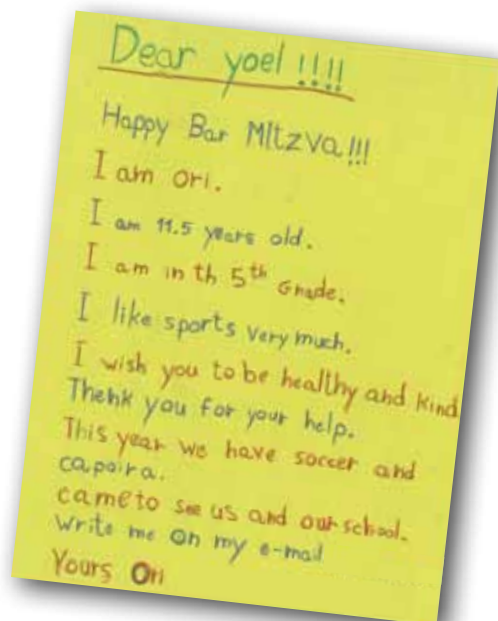 Dear yoel !!!!
Happy Bar MItzva!!!
I am ori.
I am 11.5 years old.
I am in th 5th Grade.
I like sports very much.
I wish you to be healthy and kind
Thehk you for your help.
This year we have soccer and
capoira.
came to see us and our school.
Write me on my e-mail
Yours Ori